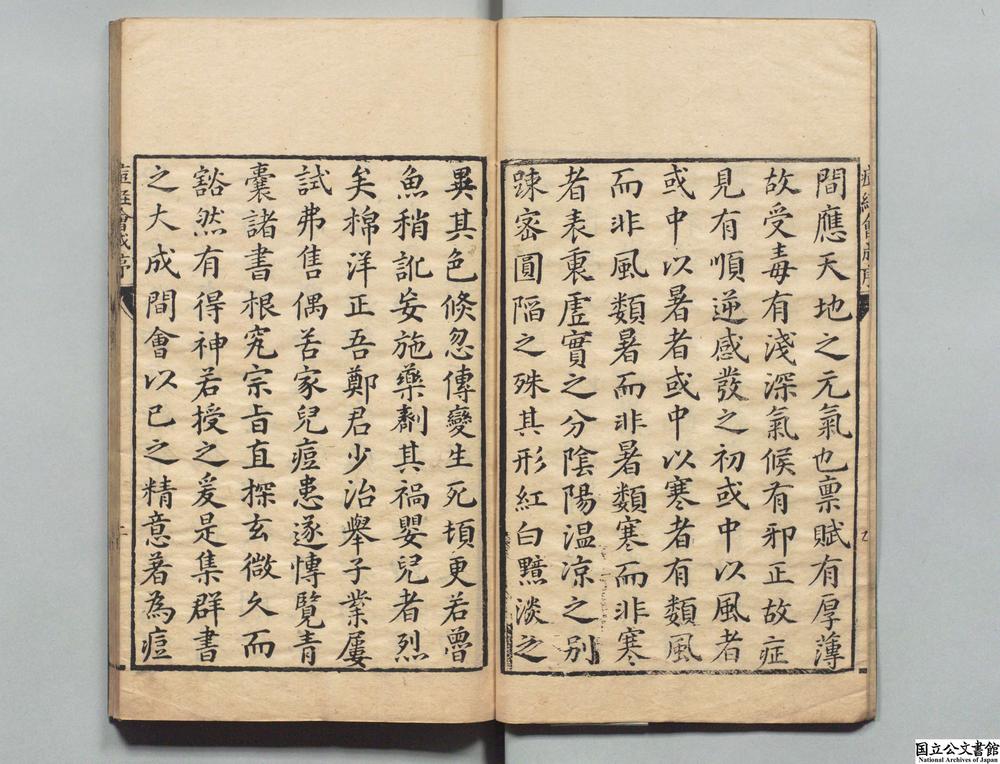 間應天地之元氣也禀賦有厚薄
故受毒有淺深氣候有邪正故症
見有順逆感發之初或中以風者
或中以暑者或中以寒者有類風
而非風類暑而非暑類寒而非寒
者表裏虛實之分陰陽温凉之别
踈宻圓陷之殊其形紅白黯淡之
異其色倐忽傳變生死頃更若曾
魚稍訛妄施藥劑其禍嬰兒者烈
矣棉洋正吾鄭君少治舉子業屢
試弗售偶苦家兒痘患遂慱覽青
囊諸書根究宗旨直探玄微久而
豁然有得神若授之爰是集群書
之大成間會以己之精意著為痘
痘經會成序
国立公文書館
National Archives of Japan